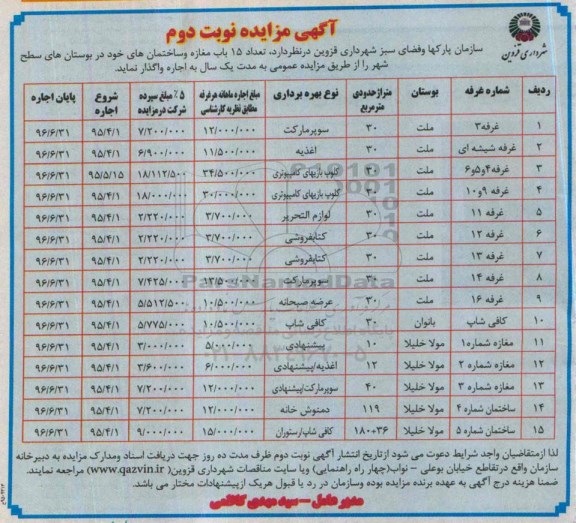 آگهی مزایده نوبت دوم
شهرداری قزوین
سازمان پارکها وفضای سبز شهرداری قزوین درنظردارد، تعداد ۱۵ باب مغازه وساختمان های خود در بوستان های سطح
شهر را از طریق مزایده عمومی به مدت یک سال به اجاره واگذار نماید.
ردیف شماره غرفه بوستان متراژحدودی مترمربع نوع بهره برداری مبلغ اجاره ماهانه هرغرفه مطابق نظریه کارشناسی ۵٪ مبلغ سپرده شرکت درمزایده شروع اجاره پایان اجاره
۱ غرفه۳ ملت ۳۰ سوپرمارکت ۱۲/۰۰۰/۰۰۰ ۷/۲۰۰/۰۰۰ ۹۵/۴/۱ ۹۶/۶/۳۱
۲ غرفه شیشه ای ملت ۳۰ اغذیه ۱۱/۵۰۰/۰۰۰ ۶/۹۰۰/۰۰۰ ۹۵/۴/۱ ۹۶/۶/۳۱
۳ غرفه۴و۵و۶ ملت ۳۰ کلوپ بازیهای کامپیوتری ۳۴/۵۰۰/۰۰۰ ۱۸/۱۱۲/۵۰۰ ۹۵/۵/۱۵ ۹۶/۶/۳۱
۴ غرفه ۹و۱۰ ملت ۳۰ کلوپ بازیهای کامپیوتری ۳۰/۰۰۰/۰۰۰ ۱۸/۰۰۰/۰۰۰ ۹۵/۴/۱ ۹۶/۶/۳۱
۵ غرفه ۱۱ ملت ۳۰ لوازم التحریر ۳/۷۰۰/۰۰۰ ۲/۲۲۰/۰۰۰ ۹۵/۴/۱ ۹۶/۶/۳۱
۶ غرفه ۱۲ ملت ۳۰ کتابفروشی ۳/۷۰۰/۰۰۰ ۲/۲۲۰/۰۰۰ ۹۵/۴/۱ ۹۶/۶/۳۱
۷ غرفه ۱۳ ملت ۳۰ کتابفروشی ۳/۷۰۰/۰۰۰ ۲/۲۲۰/۰۰۰ ۹۵/۴/۱ ۹۶/۶/۳۱
۸ غرفه ۱۴ ملت ۳۰ سوپرمارکت ۱۳/۵۰۰/۰۰۰ ۷/۴۲۵/۰۰۰ ۹۵/۵/۱ ۹۶/۶/۳۱
۹ غرفه ۱۶ ملت ۳۰ عرضه صبحانه ۱۰/۵۰۰/۰۰۰ ۵/۵۱۲/۵۰۰ ۹۵/۵/۱ ۹۶/۶/۳۱
۱۰ کافی شاپ بانوان ۳۰ کافی شاپ ۱۰/۵۰۰/۰۰۰ ۵/۷۷۵/۰۰۰ ۹۵/۵/۱ ۹۶/۶/۳۱
۱۱ مغازه شماره۱ مولا خلیلا ۱۰ پیشنهادی ۵/۰۰۰/۰۰۰ ۳/۰۰۰/۰۰۰ ۹۵/۴/۱ ۹۶/۶/۳۱
۱۲ مغازه شماره ۲ مولا خلیلا ۱۲ اغذیه/پیشنهادی ۶/۰۰۰/۰۰۰ ۳/۶۰۰/۰۰۰ ۹۵/۴/۱ ۹۶/۶/۳۱
۱۳ مغازه شماره ۳ مولا خلیلا ۴۰ سوپرمارکت/پیشنهادی ۱۲/۰۰۰/۰۰۰ ۷/۲۰۰/۰۰۰ ۹۵/۴/۱ ۹۶/۶/۳۱
۱۴ ساختمان شماره ۴ مولا خلیلا ۱۱۹ دمنوش خانه ۱۲/۰۰۰/۰۰۰ ۷/۲۰۰/۰۰۰ ۹۵/۴/۱ ۹۶/۶/۳۱
۱۵ ساختمان شماره ۵ مولا خلیلا ۱۸۰+۳۶ کافی شاپ/رستوران ۱۵/۰۰۰/۰۰۰ ۹/۰۰۰/۰۰۰ ۹۵/۴/۱ ۹۶/۶/۳۱
لذا ازمتقاضیان واجد شرایط دعوت می شود ازتاریخ انتشار آگهی نوبت دوم ظرف مدت ده روز جهت دریافت اسناد ومدارک مزایده به دبیرخانه
سازمان واقع درتقاطع خیابان بوعلی – نواب(چهار راه راهنمایی) ویا سایت مناقصات شهرداری قزوین( www.qazvin.ir) مراجعه نمایند.
ضمنا هزینه درج آگهی به عهده برنده مزایده بوده وسازمان در رد یا قبول هریک ازپیشنهادات مختار می باشد.
مدیر عامل – سید مهدی کاظمی